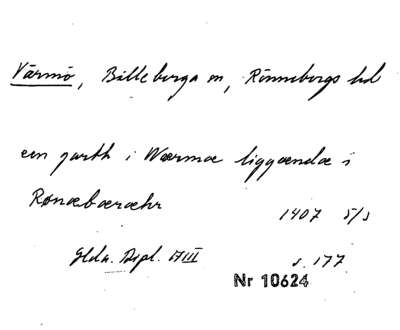 Värmö, Billeberga sn, Rönnebergs hd
een garth i Wærmæ liggændæ i
Rønæbæræhr 1407 5/3
Gldn. Dipl. 17 III s. 177
Nr 10624